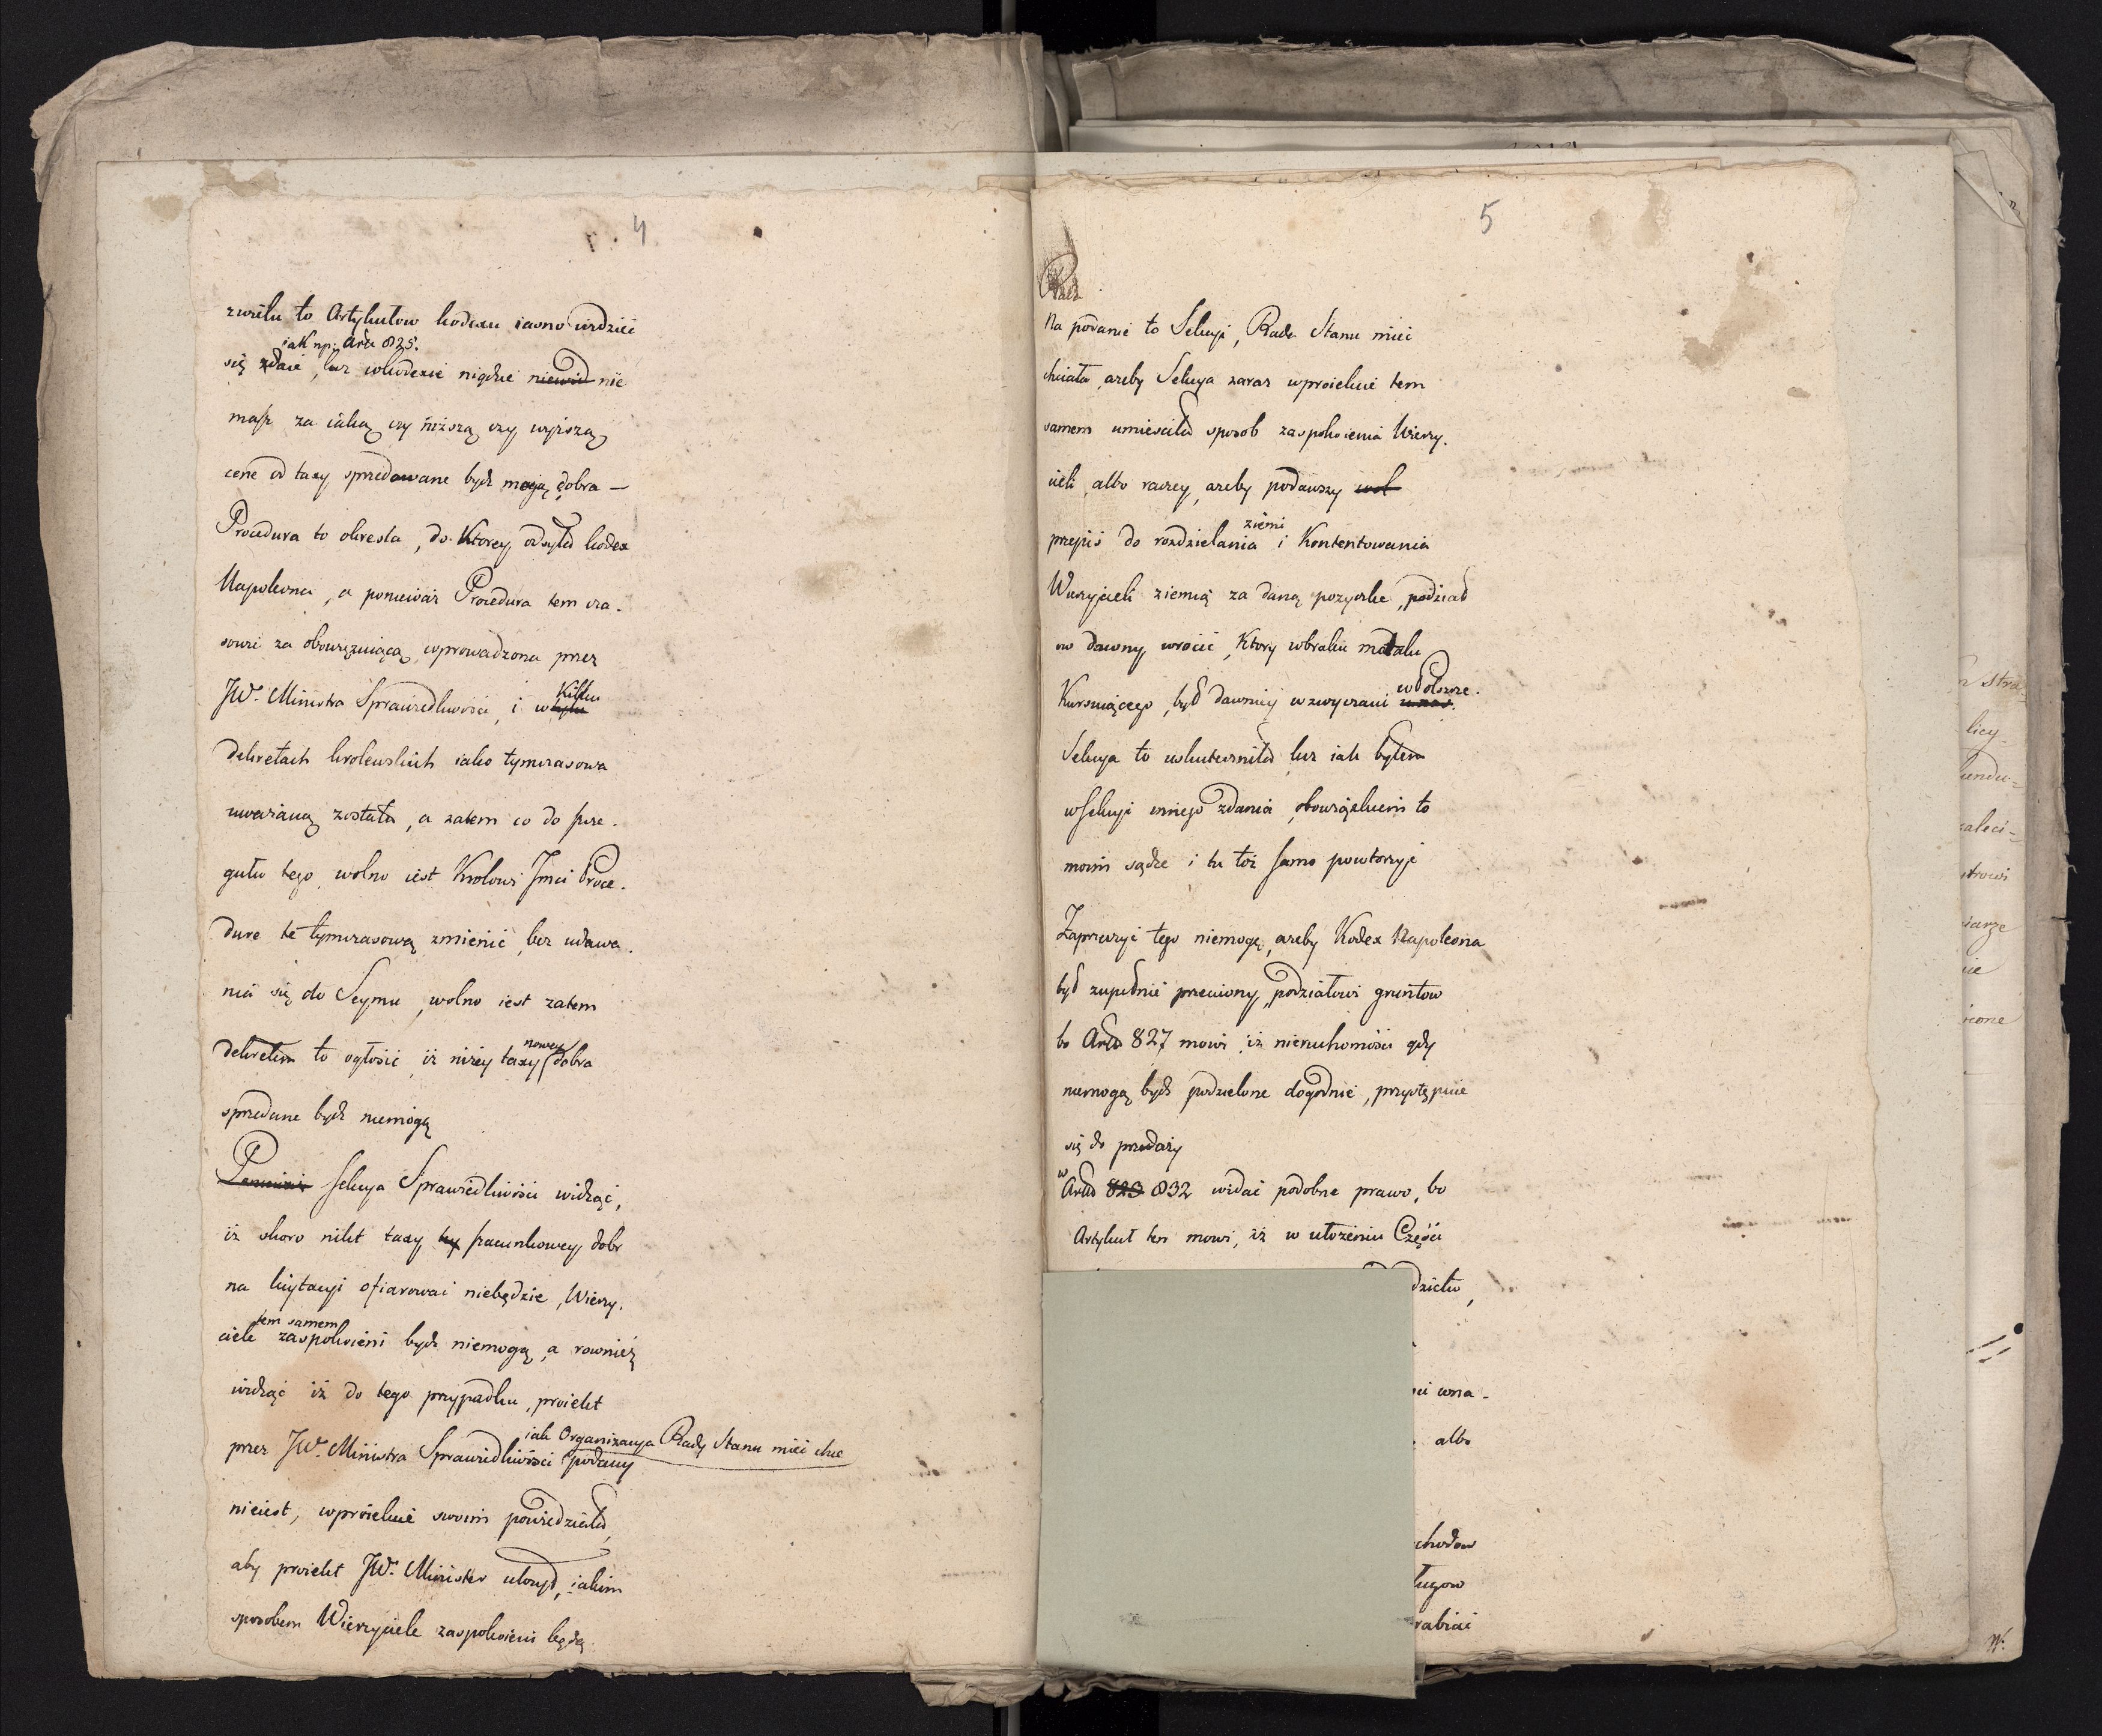 4
zwielu to Artykułow kodexu iasno widzieć
iak np: Artu 825.
się zdaie, lecz wkodexie nigdzie niewid nie
masz za iaką czy niższą czy wyższą
cene od taxy sprzedawane bydź maią dobra —
Procedura to okresla, do Ktorey odsyła kodex
Napoleona, a ponieważ Procedura tem cza-
sowie za obowięzuiącą wprowadzona przez
JW. Ministra Sprawiedliwości, i w kilku
dekretach krolewskich iako tymczasowa
uważaną została, a zatem co do szcze-
gułu tego wolno iest Krolowi Jmci Proce-
dure te tymczasową zmienić, bez udawa-
nia się do Seymu, wolno iest zatem
nowey
dekretem to ogłosić iż niżey taxy dobra
sprzedane bydź niemogą
Ponieważ Sekcya Sprawiedliwości widząc,
iż skoro nikt taxy ty szacunkowey dobr
na licytacyi ofiarować niebędzie, Wierzy-
tem samem
ciele zaspokoieni bydź niemogą, a rownież
widząc iż do tego przypadku, proiekt
iak Organizacya Rady Stanu mieć chce
przez JW. Ministra Sprawiedliwości podany
nieiest, wproiekcie swoim powiedziała,
aby proiekt JW. Minister ułożył, iakim
sposobem Wierzyciele zaspokoieni będą.
5
Rada
Na podanie to Sekcyi, Rada Stanu mieć
chciała, azeby Sekcya zaraz wproiekcie tem
samem umieściła sposob zaspokoienia Wierzy-
cieli, albo raczey, azeby podawszy wol
ziemi
przepis do rozdzielania i Kontentowania
Wierzycieli ziemią za daną pozyczke, podział
ow dawny wrocić, Ktory wbraku metalu
w Polszcze.
Kursuiącego, był dawniey wzwyczaiu unas.
Sekcya to uskuteczniła lecz iak byłem
wSekcyi innego zdania, obowiązkiem to
moim sądze i tu toż samo powtorzyć
Zaprzeczyć tego niemogę, azeby Kodex Napoleona
był zupełnie przeciwny podziałowi gruntow
bo Artł 827 mowi iż nieruchomości gdy
niemogą bydź podzielone dogodnie, przystępuie
się do przedaży
w
Artle 823 832 widać podobne prawo, bo
Artykuł ten mowi, iż w ułożeniu Części
albo